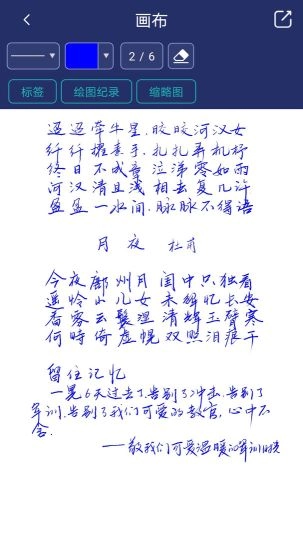 画布
2 / 6
标签 绘图纪录 缩略图
迢迢牵牛星，皎皎河汉女
纤纤擢素手，扎扎弄机杼
终日不成章 泣涕零如雨
河汉清且浅 相去复几许
盈盈一水间，脉脉不得语
月夜 杜甫
今夜鄜州月 闺中只独看
遥怜小儿女 未解忆长安
香雾云鬟湿 清辉玉臂寒
何時倚虚幌 双照泪痕干
留住记忆
一晃6天过去了，告别了冲击，告别了
军训，告别了我们可爱的教官，心中不
舍.
——敬我们可爱温暖的军训时光